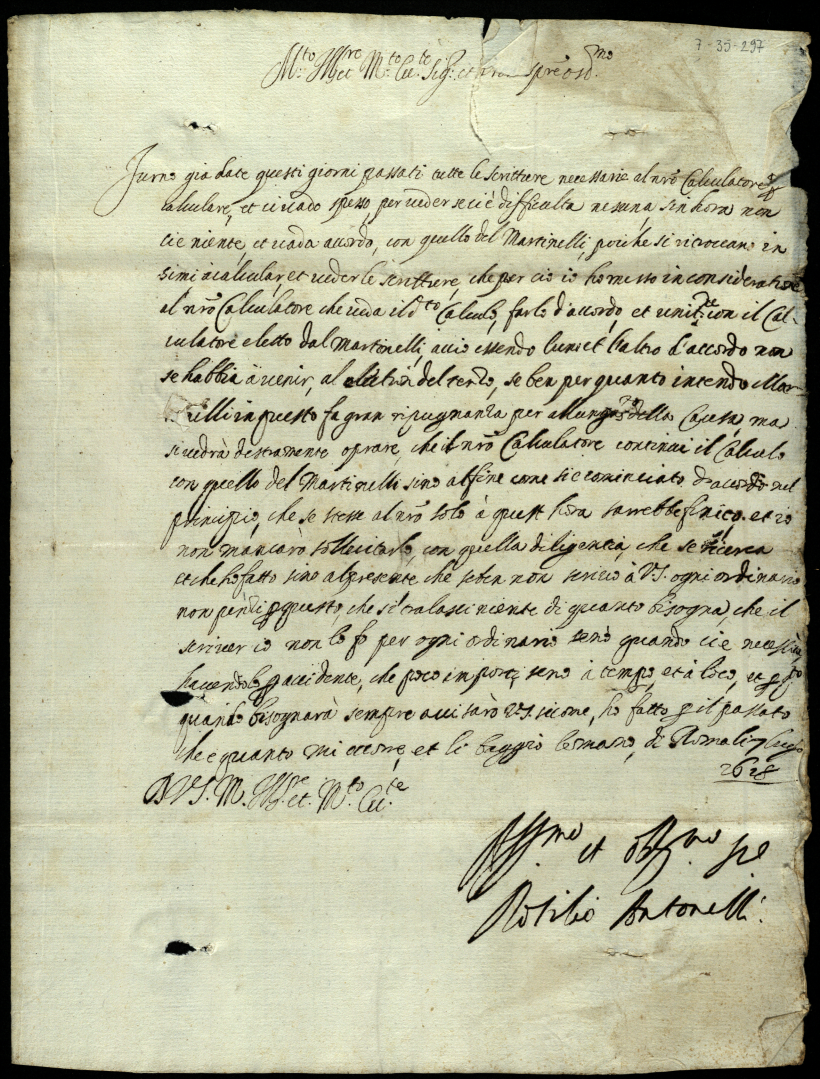 7-35-297
M.to Ill.re et M.to Ecc.te Sig.r et
Furno gia date questi giorni passati tutte le scritture necessarie al nrõ Calculatore
calculare, et ci vado spesso per veder se ci è difficulta nesuna, sin hora non
ci e niente, et vada accordo, con quello del Martinelli, poiche si ritrovano in
simi a calcular et veder le scritture, che per cio io ho messo in consideratione
al nrõ Calculatore che veda il d.to Calculo, farlo d'accordo, et unit.te con il Cal-
culatore eletto dal Martinelli, accio essendo l'uni et l'altro d'accordo non
se habbia à venir, al del terzo, se ben per quanto intendo Mar-
in questo fa gran ripugnanza per della Causa, ma
si vedrà destramente oprare, che il nrõ Calculatore continui il Calculo
con quello del Martinelli sino al fine come si è cominciato d'accordo nel
principio, che se stesse al nrõ solo à quest hora sarrebbe finito. et io
non mancarò sollecitarlo, con quella diligentia, che se ricerca
et che ho fatto sino al presente che seben non scrivo à V.S. ogni ordinario
non pensi p questo, che si tralasci niente di quanto bisogna, che il
scriver io non lo fo per ogni ordinario senõ quando ci è necessità,
havendolo p accidente, che poco importi, seno à tempo, et à loco, et
quando bisognarà sempre avisarò V.S. sicome, ho fatto p il passato
che è quanto mi occorre, et li baggio le mano, di Roma li 7 luglio
1628
D V.S. M. Ill.re et. M.to Ecc.te
Aff.mo et obb.mo
Rotilio Antonelli